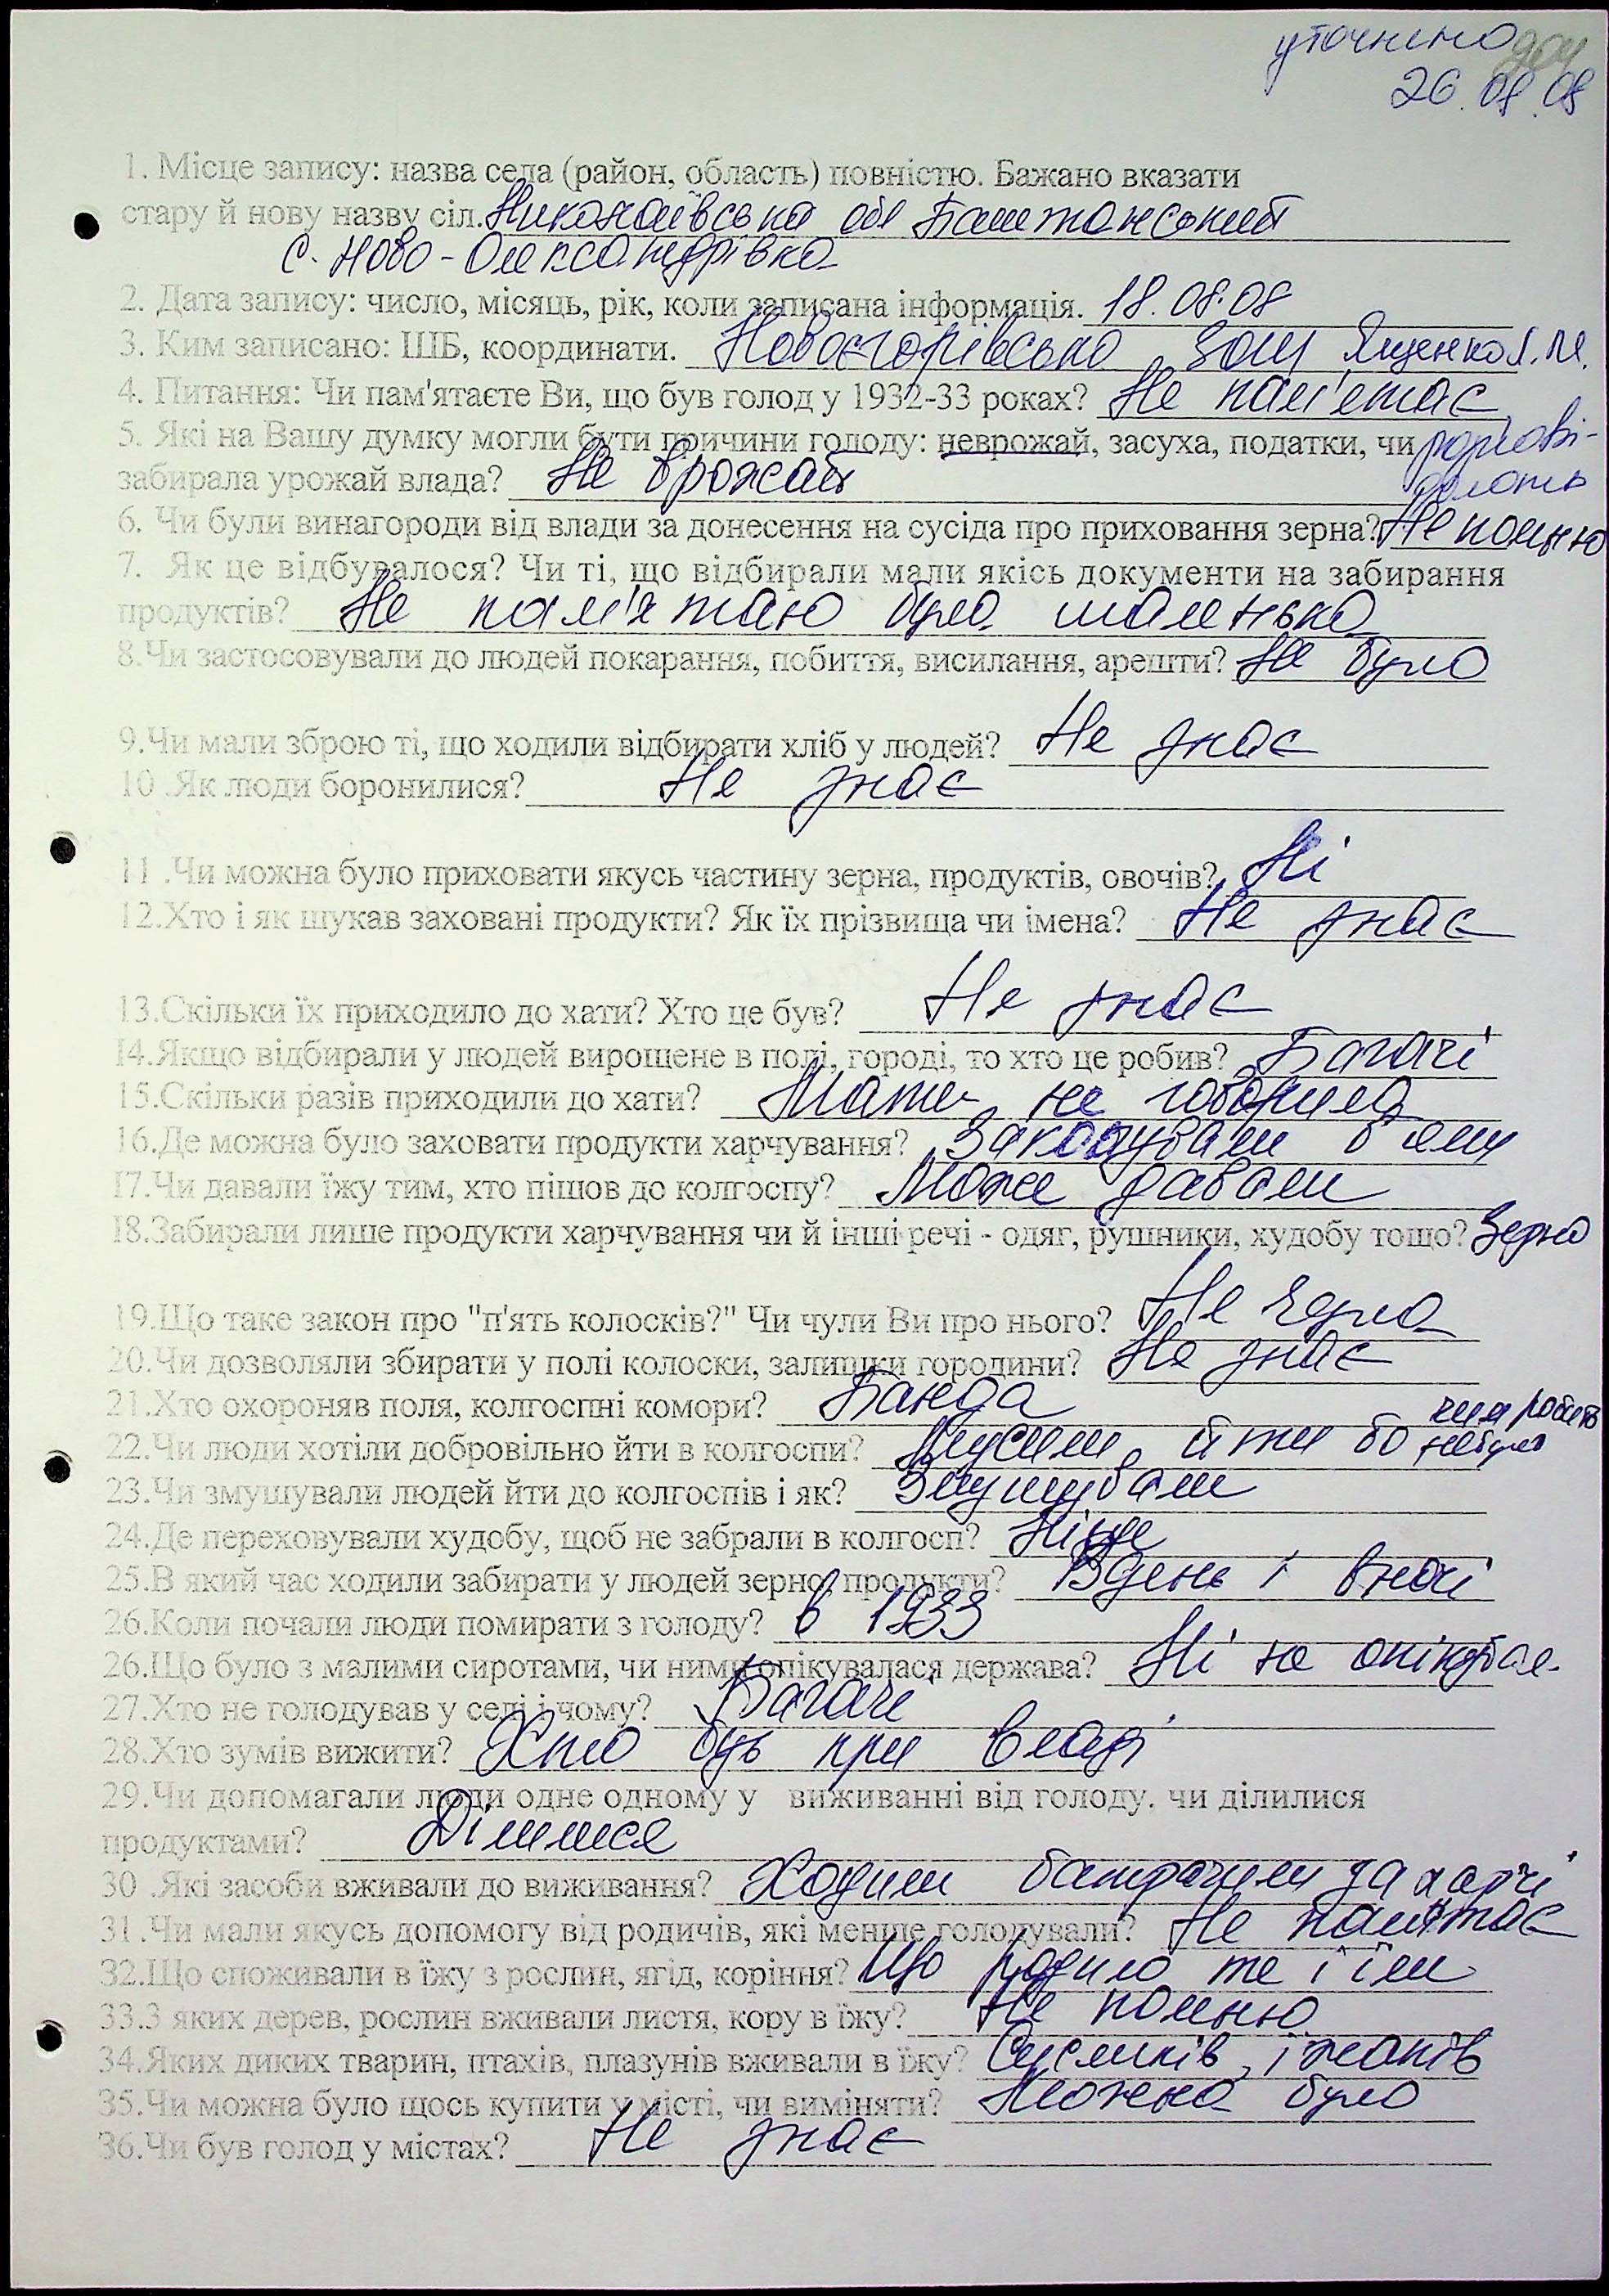 уточнено
26.08.08
1. Місце запису: назва села (район, область) повністю. Бажано вказати
стару й нову назву сіл. Николаївська обл Баштанський
с. Ново-Олександрівка
2. Дата запису: число, місяць, рік, коли записана інформація. 18.08.08
3. Ким записано: ПІБ, координати. Новоєгорівсько зош Ященко Л.М.
4. Питання: Чи пам'ятаєте Ви, що був голод у 1932-33 роках? Не пам'етає
5. Які на Вашу думку могли бути причини голоду: неврожай, засуха, податки, чи розпові-
забирала урожай влада? Не врожай
6. Чи були винагороди від влади за донесення на сусіда про приховання зерна? Не помню
7. Як це відбувалося? Чи ті, що відбирали мали якісь документи на забирання
продуктів? Не пам'ятаю була маленька
8.Чи застосовували до людей покарання, побиття, висилання, арешти? Не було
9.Чи мали зброю ті, що ходили відбирати хліб у людей? Не знає
10 .Як люди боронилися? Не знає
11 .Чи можна було приховати якусь частину зерна, продуктів, овочів? Ні
12.Хто і як шукав заховані продукти? Як їх прізвища чи імена? Не знає
13.Скільки їх приходило до хати? Хто це був? Не знає
14.Якщо відбирали у людей вирощене в полі, городі, то хто це робив? Багачі
15.Скільки разів приходили до хати? Мати не говорила
16.Де можна було заховати продукти харчування? Закопували в яму
17.Чи давали їжу тим, хто пішов до колгоспу? Може давали
18.Забирали лише продукти харчування чи й інші речі - одяг, рушники, худобу тощо? Зерно
19.Що таке закон про "п'ять колосків?" Чи чули Ви про нього? Не чула
20.Чи дозволяли збирати у полі колоски, залишки городини? Не знає
21.Хто охороняв поля, колгоспні комори? Банда
22.Чи люди хотіли добровільно йти в колгоспи? Мусили йти бо робить не було
23.Чи змушували людей йти до колгоспів і як? Змушували
24.Де переховували худобу, щоб не забрали в колгосп? Ніде
25.В який час ходили забирати у людей зерно, продукти? Вдень і вночі
26.Коли почали люди помирати з голоду? в 1933
26.Що було з малими сиротами, чи ними опікувалася держава? Ні
27.Хто не голодував у селі і чому? Багачі
28.Хто зумів вижити? Хто був при владі
29.Чи допомагали люди одне одному у виживанні від голоду. чи ділилися
продуктами? Ділилися
30 .Які засоби вживали до виживання? Ходили батрачили за харчі
31.Чи мали якусь допомогу від родичів, які менше голодували? Не пам'ятає
32.Що споживали в їжу з рослин, ягід, коріння? Що родило те і їли
33.З яких дерев, рослин вживали листя, кору в їжу? Не помню
34.Яких диких тварин, птахів, плазунів вживали в їжу? Сусликів, їжаків
35.Чи можна було щось купити у місті, чи виміняти? Можна було
36.Чи був голод у містах? Не знає